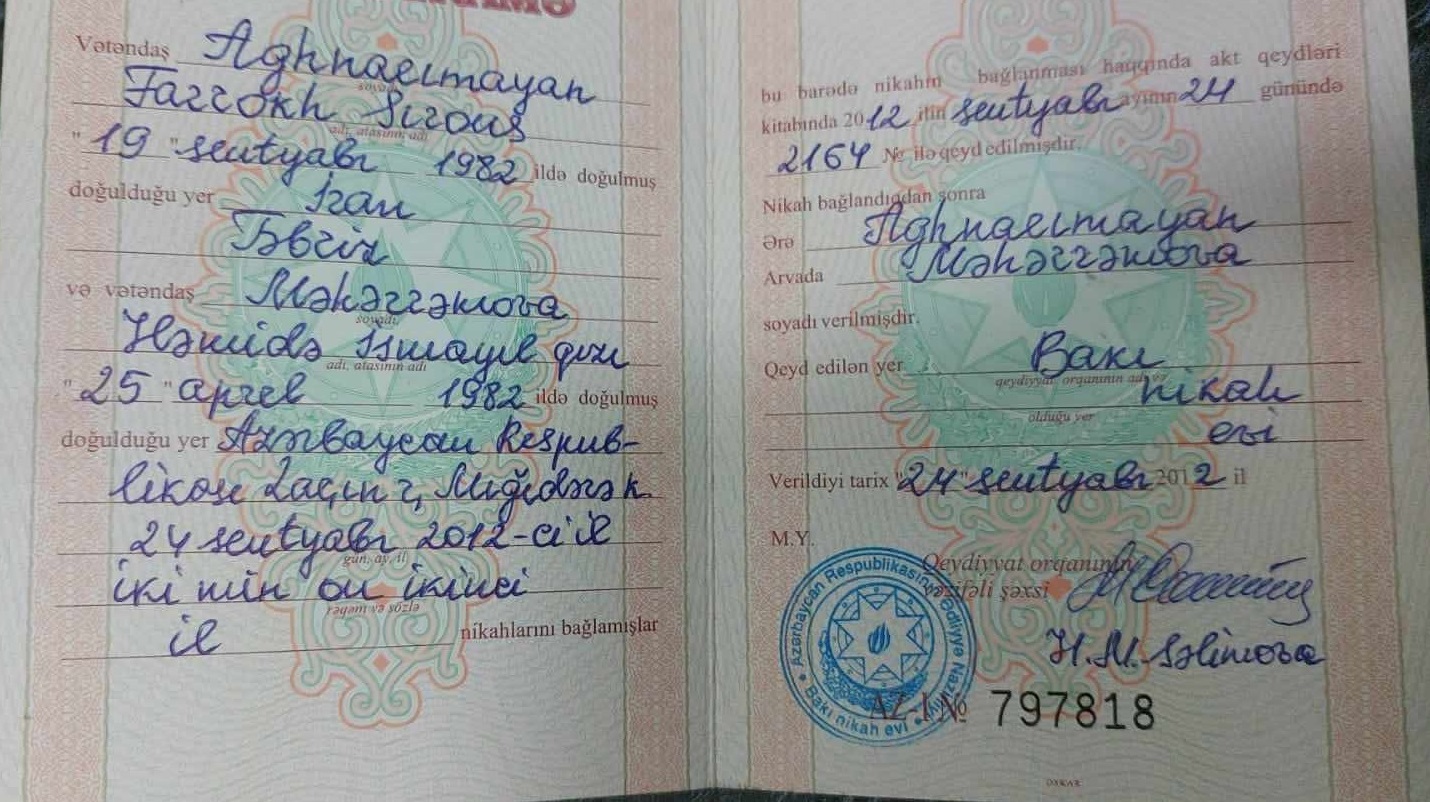 Vətəndaş Aghnaeimayan
soyadı
Farrokh Sirous
adı, atasının adı
"19" sentyabr 1982 ildə doğulmuş
doğulduğu yer İran
və vətəndaş Məhərrəmova
soyadı
Həmidə İsmayıl qızı
adı, atasının adı
"25" aprel 1982 ildə doğulmuş
doğulduğu yer Azərbaycan Respub-
likası Laçın r, Mığıdərə k.
24 sentyabr 2012-ci il
gün, ay, il
iki min on ikinci
rəqəm və sözlə
il nikahlarını bağlamışlar
bu barədə nikahın bağlanması haqqında akt qeydləri
kitabında 2012 ilin sentyabr ayının 24 günündə
2164 № ilə qeyd edilmişdir.
Nikah bağlandıqdan sonra
Ərə Aghnaeimayan
Arvada Məhərrəmova
soyadı verilmişdir.
Qeyd edilən yer Bakı
qeydiyyat orqanının adı və
nikah
olduğu yer
evi
Verildiyi tarix "24" sentyabr 2012 il
M.Y.
Qeydiyyat orqanının
vəzifəli şəxsi
H.M. Səlimova
Azərbaycan Respublikasının Ədliyyə Nazirliyi
Bakı nikah evi
AZ-I № 797818